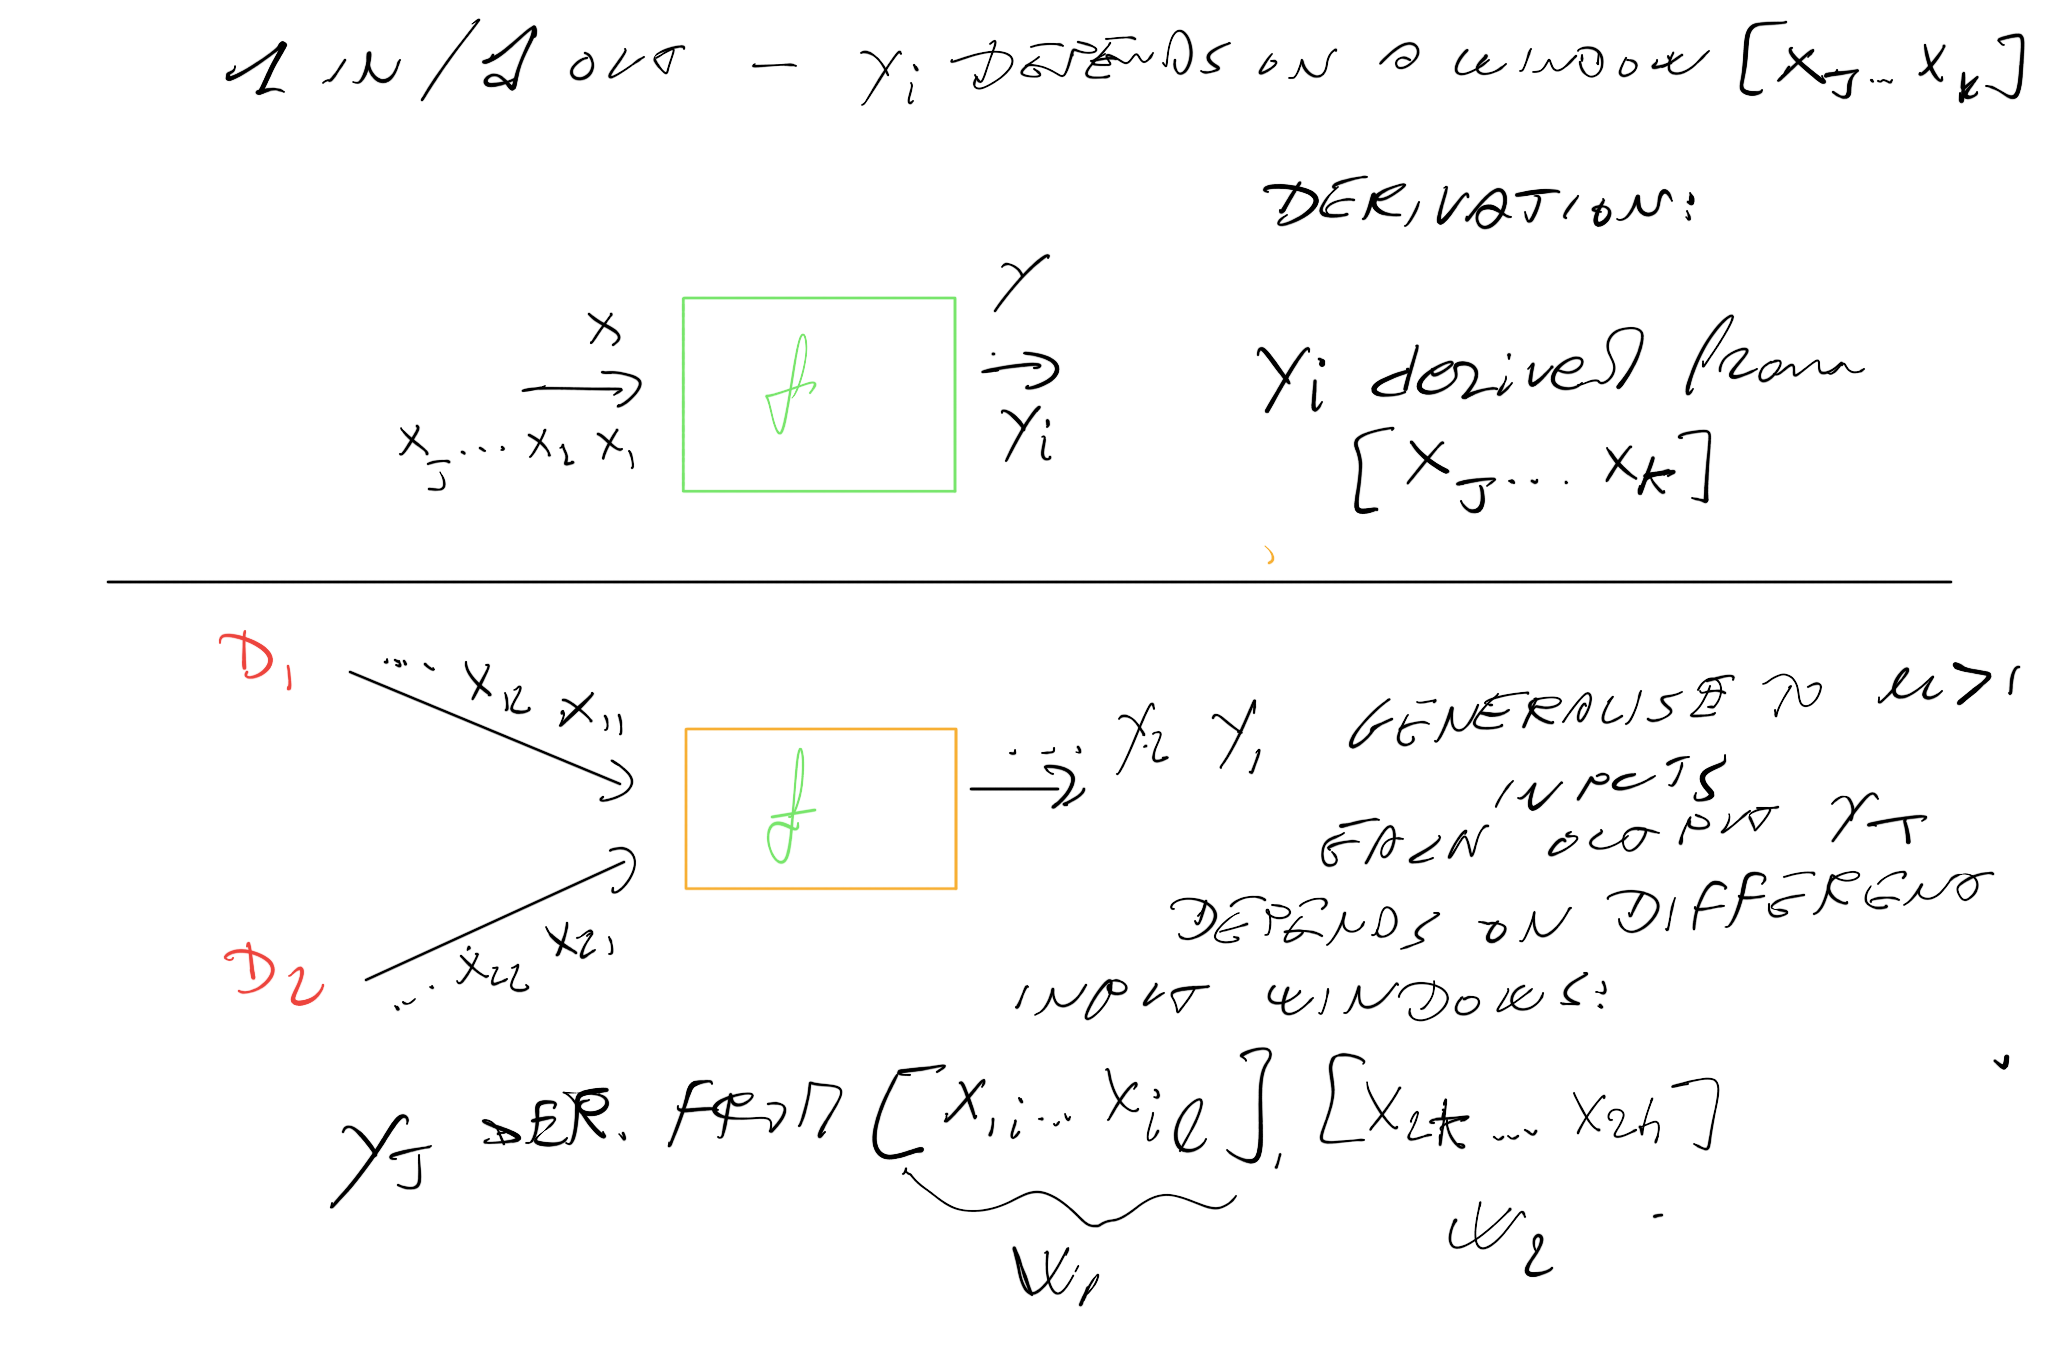 1 IN / 1 OUT – Yi DEPENDS ON A WINDOW [XJ... XK]
DERIVATION:
X
Y
f
XJ... X2 X1
Yi
Yi derived from
[XJ... XK]
D1
.... X12 X11
f
.... Y2 Y1
GENERALISE TO n>1
INPUTS
EACH OUTPUT YJ
DEPENDS ON DIFFERENT
INPUT WINDOWS:
D2
... X22 X21
YJ DER. FROM [X1i... Xil], [X2k... X2h]
W1
W2